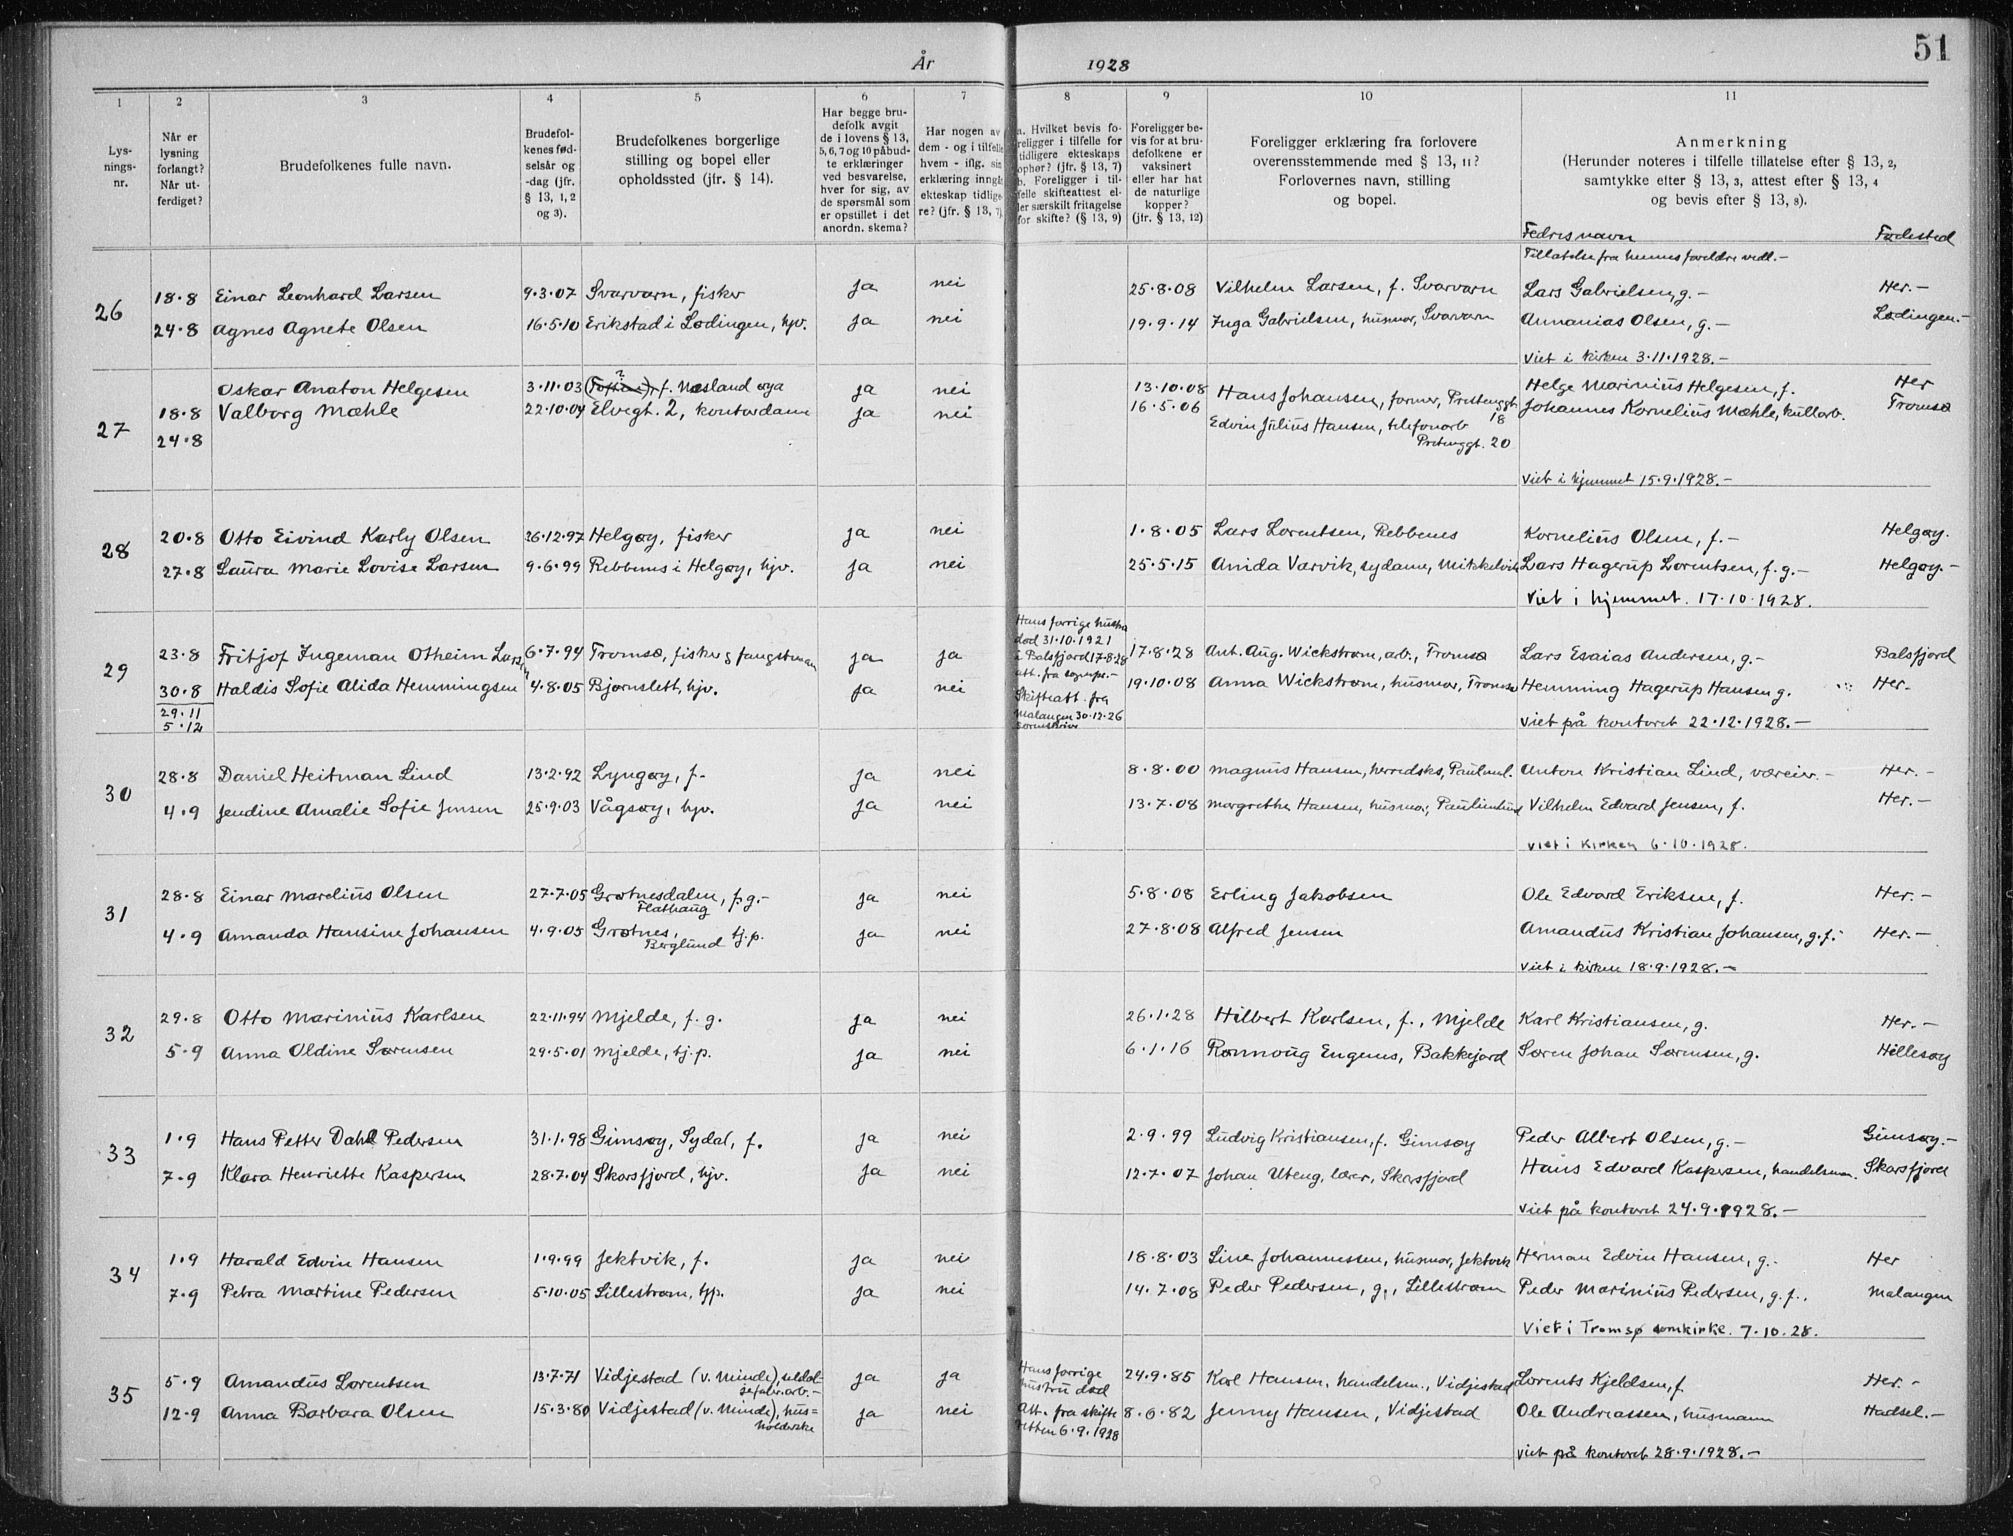 År 1928
51
1 2 3 4 5 6 7 8 9 10 11
Lys-
nings-
nr.
Når er
lysning
forlangt?
Når ut-
ferdiget?
Brudefolkenes fulle navn.
Brudefol-
kenes fød-
selsår og
-dag (jfr.
§ 13, 1, 2
og 3).
Brudefolkenes borgerlige
stilling og bopel eller
opholdssted (jfr. § 14).
Har begge bru-
defolk avgit
de i lovens § 13,
5, 6, 7 og 10 påbud-
te erklæringer
ved besvarelse,
hver for sig, av
de spørsmål som
er opstillet i det
anordn. skema?
Har nogen av
dem - og i tilfelle
hvem - iflg. sin
erklæring inngåt
ekteskap tidlige-
re? (jfr. § 13, 7).
a. Hvilket bevis fo-
religger i tilfelle for
tidligere ekteskaps
ophør? (jfr. § 13, 7)
b. Foreligger i til-
felle skifteattest el-
ler særskilt fritagelse
for skifte? (§ 13, 9)
Foreligger be-
vis for at bru-
defolkene er
vaksinert
eller har hat
de naturlige
kopper?
(jfr. § 13, 12)
Foreligger erklæring fra forlovere
overensstemmende med § 13, 11?
Forlovernes navn, stilling
og bopel.
Anmerkning
(Herunder noteres i tilfelle tillatelse efter § 13, 2,
samtykke efter § 13, 3, attest efter § 13, 4
og bevis efter § 13, 8).
Fedres navn Fødested
Tillatelse fra hennes foreldre vedl.-
26 18.8 Einar Leonhard Larsen 9.3.07 Svarvarn, fisker ja nei 25.8.08 Vilhelm Larsen, f. Svarvarn Lars Gabrielsen, g.- Her.-
24.8 Agnes Agnete Olsen 16.5.10 Erikstad i Lødingen, hjv. ja nei 19.9.14 Inga Gabrielsen, husmor, Svarvarn Annanias Olsen, g.- Lødingen.-
Viet i kirken 3.11.1928.-
27 Oskar Anaton Helgesen 3.11.03 f. Næsland øya ja nei 13.10.08 Hans Johansen, former, Prestenggt. 18 Helge Marinius Helgesen, f. Her
18.8 Valborg Mæhle 22.10.04 Elvegt. 2, kontordame ja nei 16.5.06 Johannes Kornelius Mæhle, kullarb. Tromsø
24.8 Edvin Julius Hansen, telefonarb
Prestenggt. 20
Viet i hjemmet 15.9.1928.-
28 20.8 Otto Eivind Karly Olsen 26.12.97 Helgøy, fisker ja nei 1.8.05 Lars Lorentsen, Rebbenes Kornelius Olsen, f.- Helgøy.
27.8 Laura Marie Lovise Larsen 9.6.99 Rebbenes i Helgøy, hjv. ja nei 25.5.15 Anida Varvik, sydame, Mikkelvik Lars Hagerup Lorentsen, f.g.- Helgøy.-
Viet i hjemmet. 17.10.1928.
29 23.8 Fritjof Ingeman Otheim Larsen 6.7.94 Tromsø, fisker g fangstman ja ja 17.8.28 Ant. Aug. Wickstrøm, arb., Tromsø Lars Esaias Andersen, g.- Balsfjord
Hans forrige hustru
død 31.10.1921
i Balsfjord 17.8.28
att. fra sognepr.-
30.8 Haldis Sofie Alida Hemmingsen 4.8.05 Bjørnslett, hjv. ja nei 19.10.08 Anna Wickstrøm, husmor, Tromsø Hemming Hagerup Hansen g. Her.
Skifteatt. fra
Malangen 30.12.26
sorenskriv
29.11
5.12
Viet på kontoret 22.12.1928.-
30 28.8 Daniel Heitman Lind 13.2.92 Lyngøy, f- ja nei 8.8.00 Magnus Hansen, herredsks, Paulinel. Anton Kristian Lind, væreier.- Her.-
4.9 Jendine Amalie Sofie Jensen 25.9.03 Vågsøy, hjv. ja nei 13.7.08 Margrethe Hansen, husmor, Paulinelund Vilhelm Edvard Jensen, f. Her.-
Viet i Kirken 6.10.1928.
31 28.8 Einar Marelius Olsen 27.7.05 Grøtnesdalen, f.g.- ja nei 5.8.08 Erling Jakobsen Ole Edvard Eriksen, f. Her.-
Flathaug
4.9 Amanda Hansine Johansen 4.9.05 Grøtnes, tj.p. ja nei 27.8.08 Alfred Jensen Amandus Kristian Johansen, g.f.- Her.-
Berglund
Viet i kirken 18.9.1928.-
32 29.8 Otto Marinius Karlsen 22.11.94 Mjelde, f.g. ja nei 26.1.28 Hilbert Karlsen, f., Mjelde Karl Kristiansen, g. Her.-
5.9 Anna Oldine Sørensen 29.5.01 Mjelde, tj.p. ja nei 6.1.16 Rønnoug Engenes, Bakkejord Søren Johan Sørensen, g. Hillesøy
33 1.9 Hans Petter Dahl Pedersen 31.1.98 Gimsøy, Sydal, f. ja nei 2.9.99 Ludvig Kristiansen, f. Gimsøy Peder Albert Olsen, g.- Gimsøy.-
7.9 Klara Henriette Kaspersen 28.7.04 Skarsfjord, hjv. ja nei 12.7.07 Johan Uteng, lærer, Skarsfjord Hans Edvard Kaspersen, handelsman. Skarsfjord
Viet på kontoret 24.9.1928.-
34 1.9 Harald Edvin Hansen 1.9.99 Jektvik, f. ja nei 18.8.03 Sine Johannessen, husmor, Jektvik Herman Edvin Hansen, g.- Her
7.9 Petra Martine Pedersen 5.10.05 Lillestrøm, tjp. ja nei 14.7.08 Peder Pedersen, g., Lillestrøm Peder Marinius Pedersen, g.f., Malangen
Viet i Tromsø domkirke. 7.10.28.
35 5.9 Amandus Lorentsen 13.7.71 Vidjestad (v. Minde), ja ja 24.9.85 Karl Hansen, handelsm., Vidjestad Lorents Kjeldsen, f Her.-
Hans forrige
hustru død
12.9 Anna Barbara Olsen 15.3.80 Vidjestad (v. Minde), hus=
holderske ja nei 8.6.82 Jenny Hansen, Vidjestad Ole Andreassen, husmann Hadsel.-
Att. fra skifte
retten 6.9.1928
Viet på kontoret 28.9.1928.-